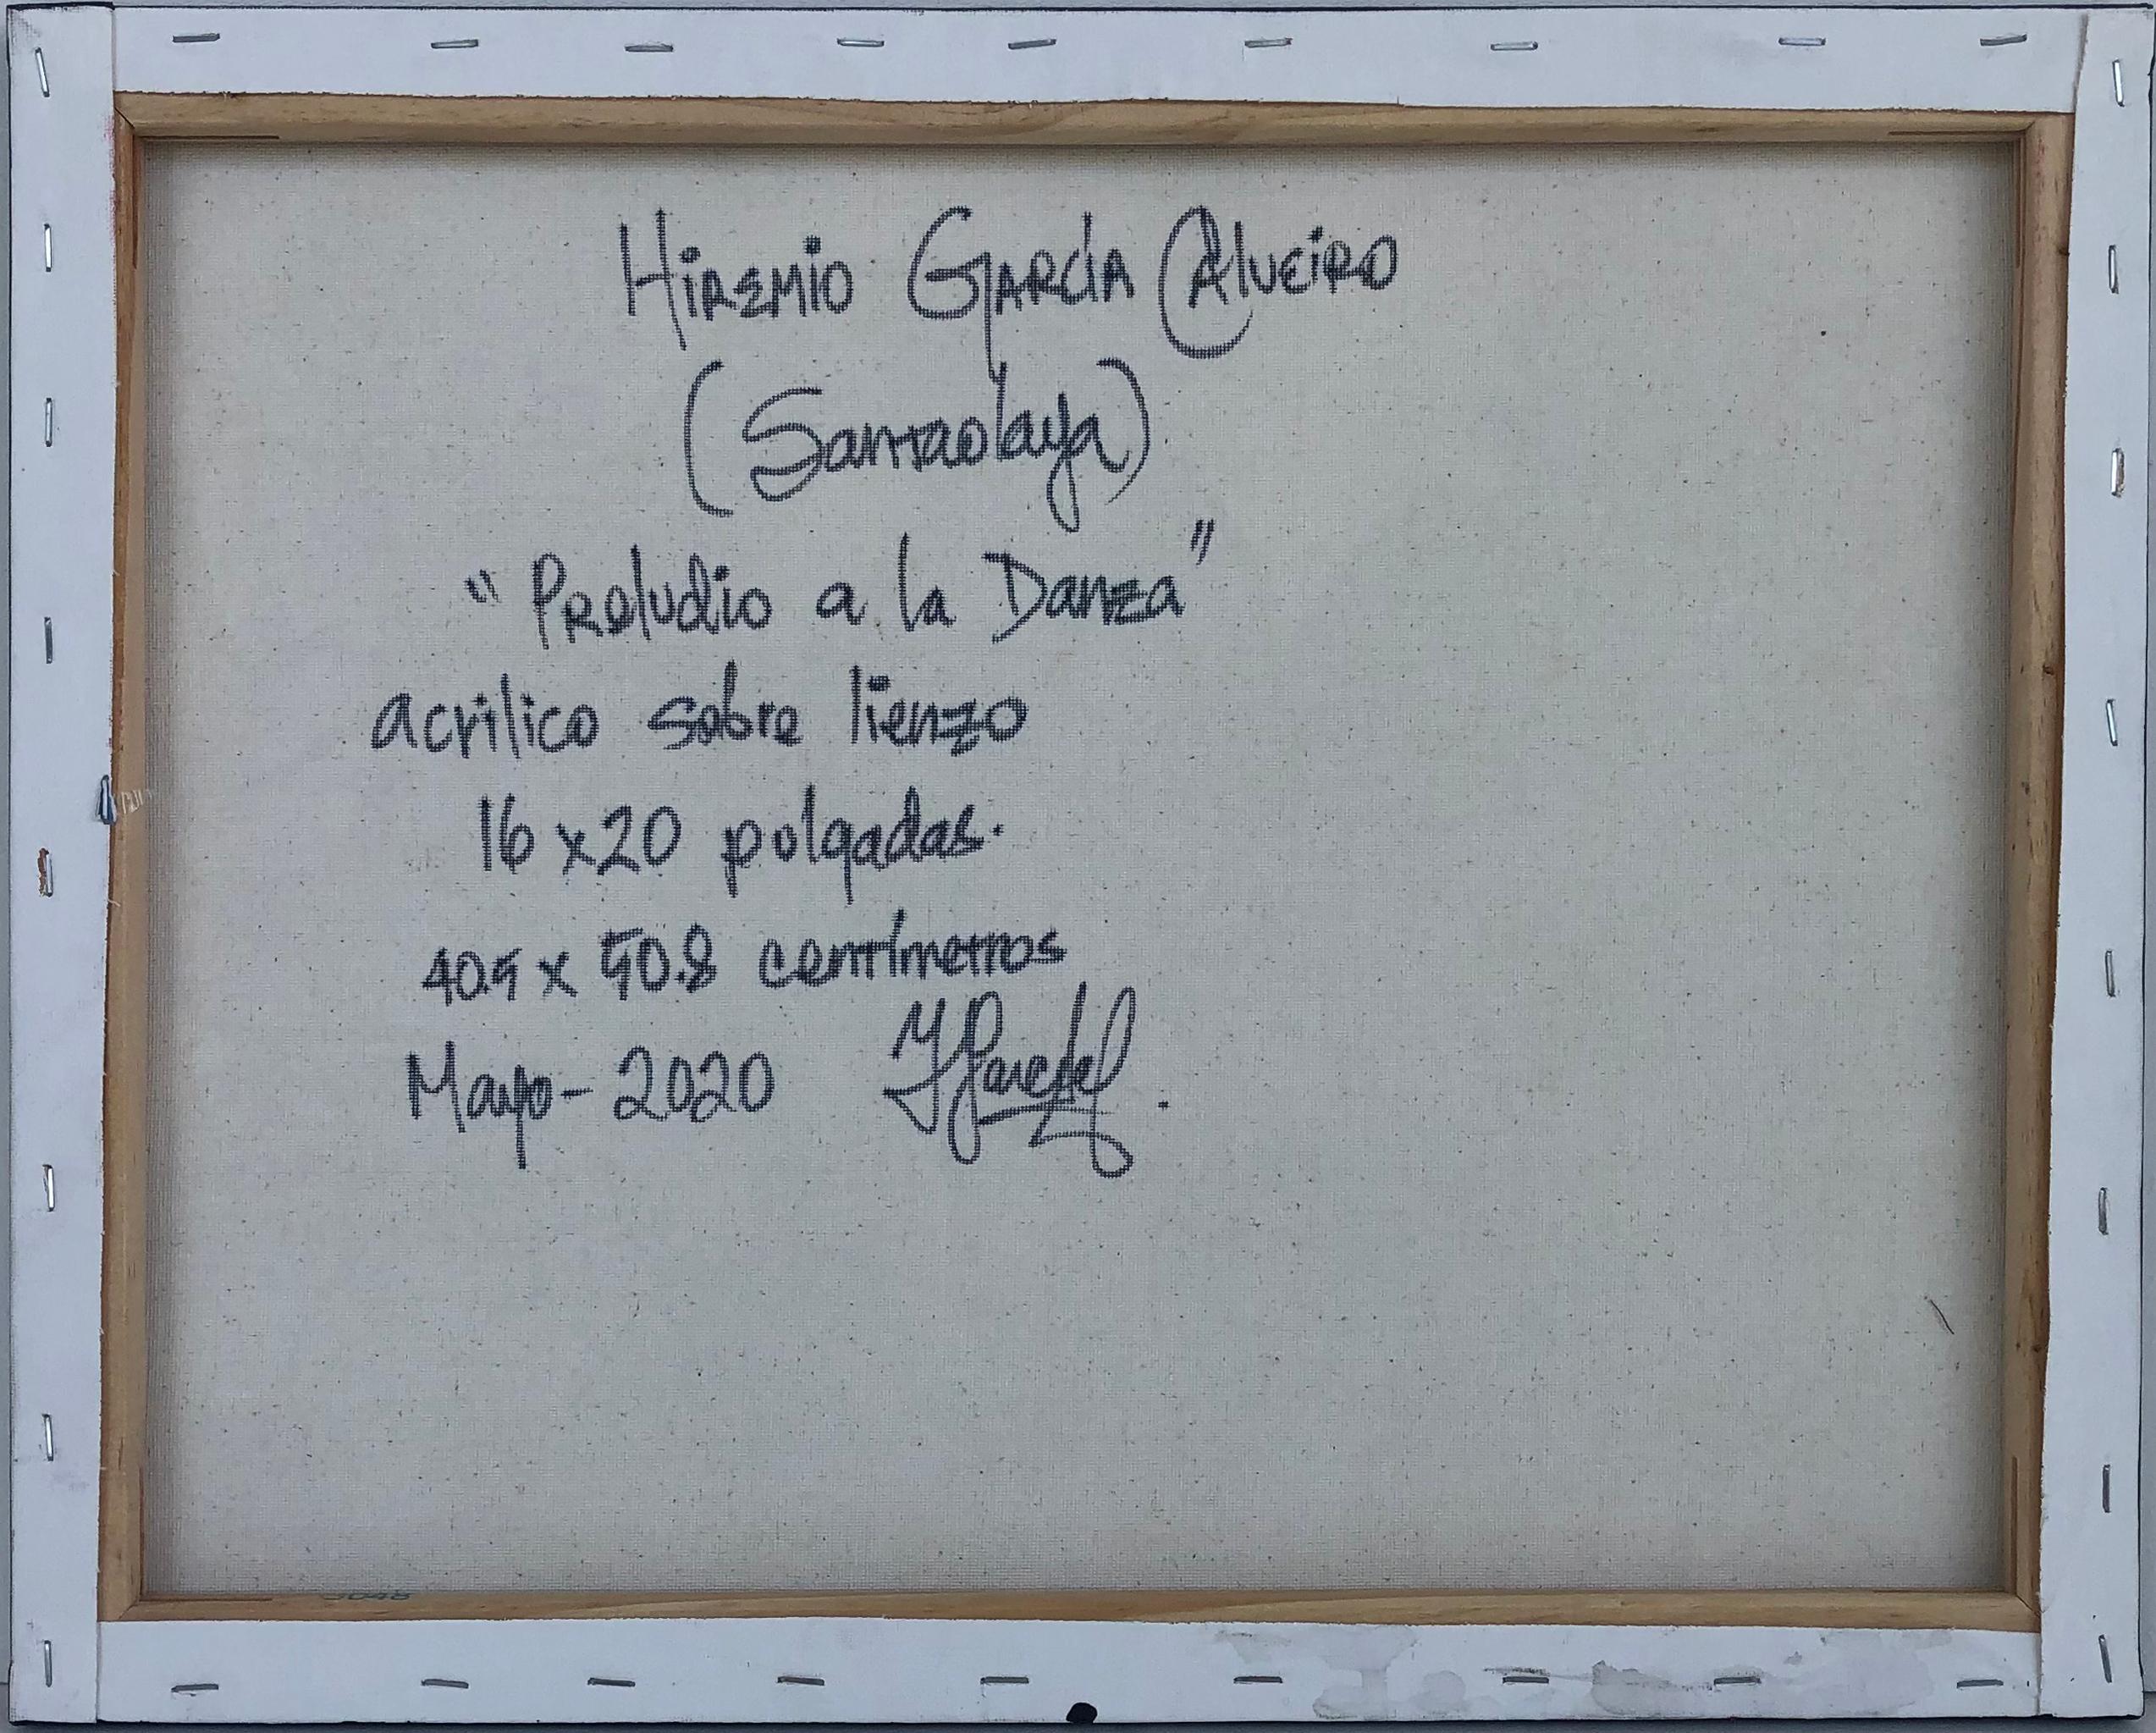 HiREMiO GARCÍA CAlVEiRO
(Santaolaya)
"PReludio a la Danza"
acrilico sobre lienzo
16 x 20 pulgadas.
40.5 x 50.8 centímetros
Mayo - 2020